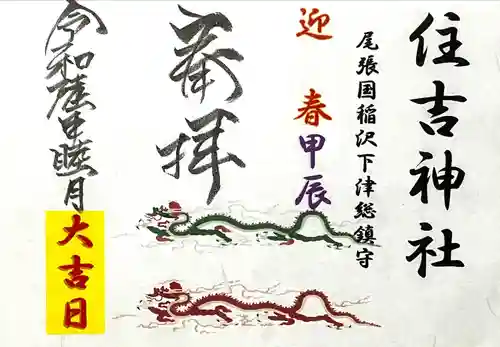 住吉神社
尾張国稲沢下津総鎮守
迎 春 甲辰
奉拝
令和 睦月
大吉日